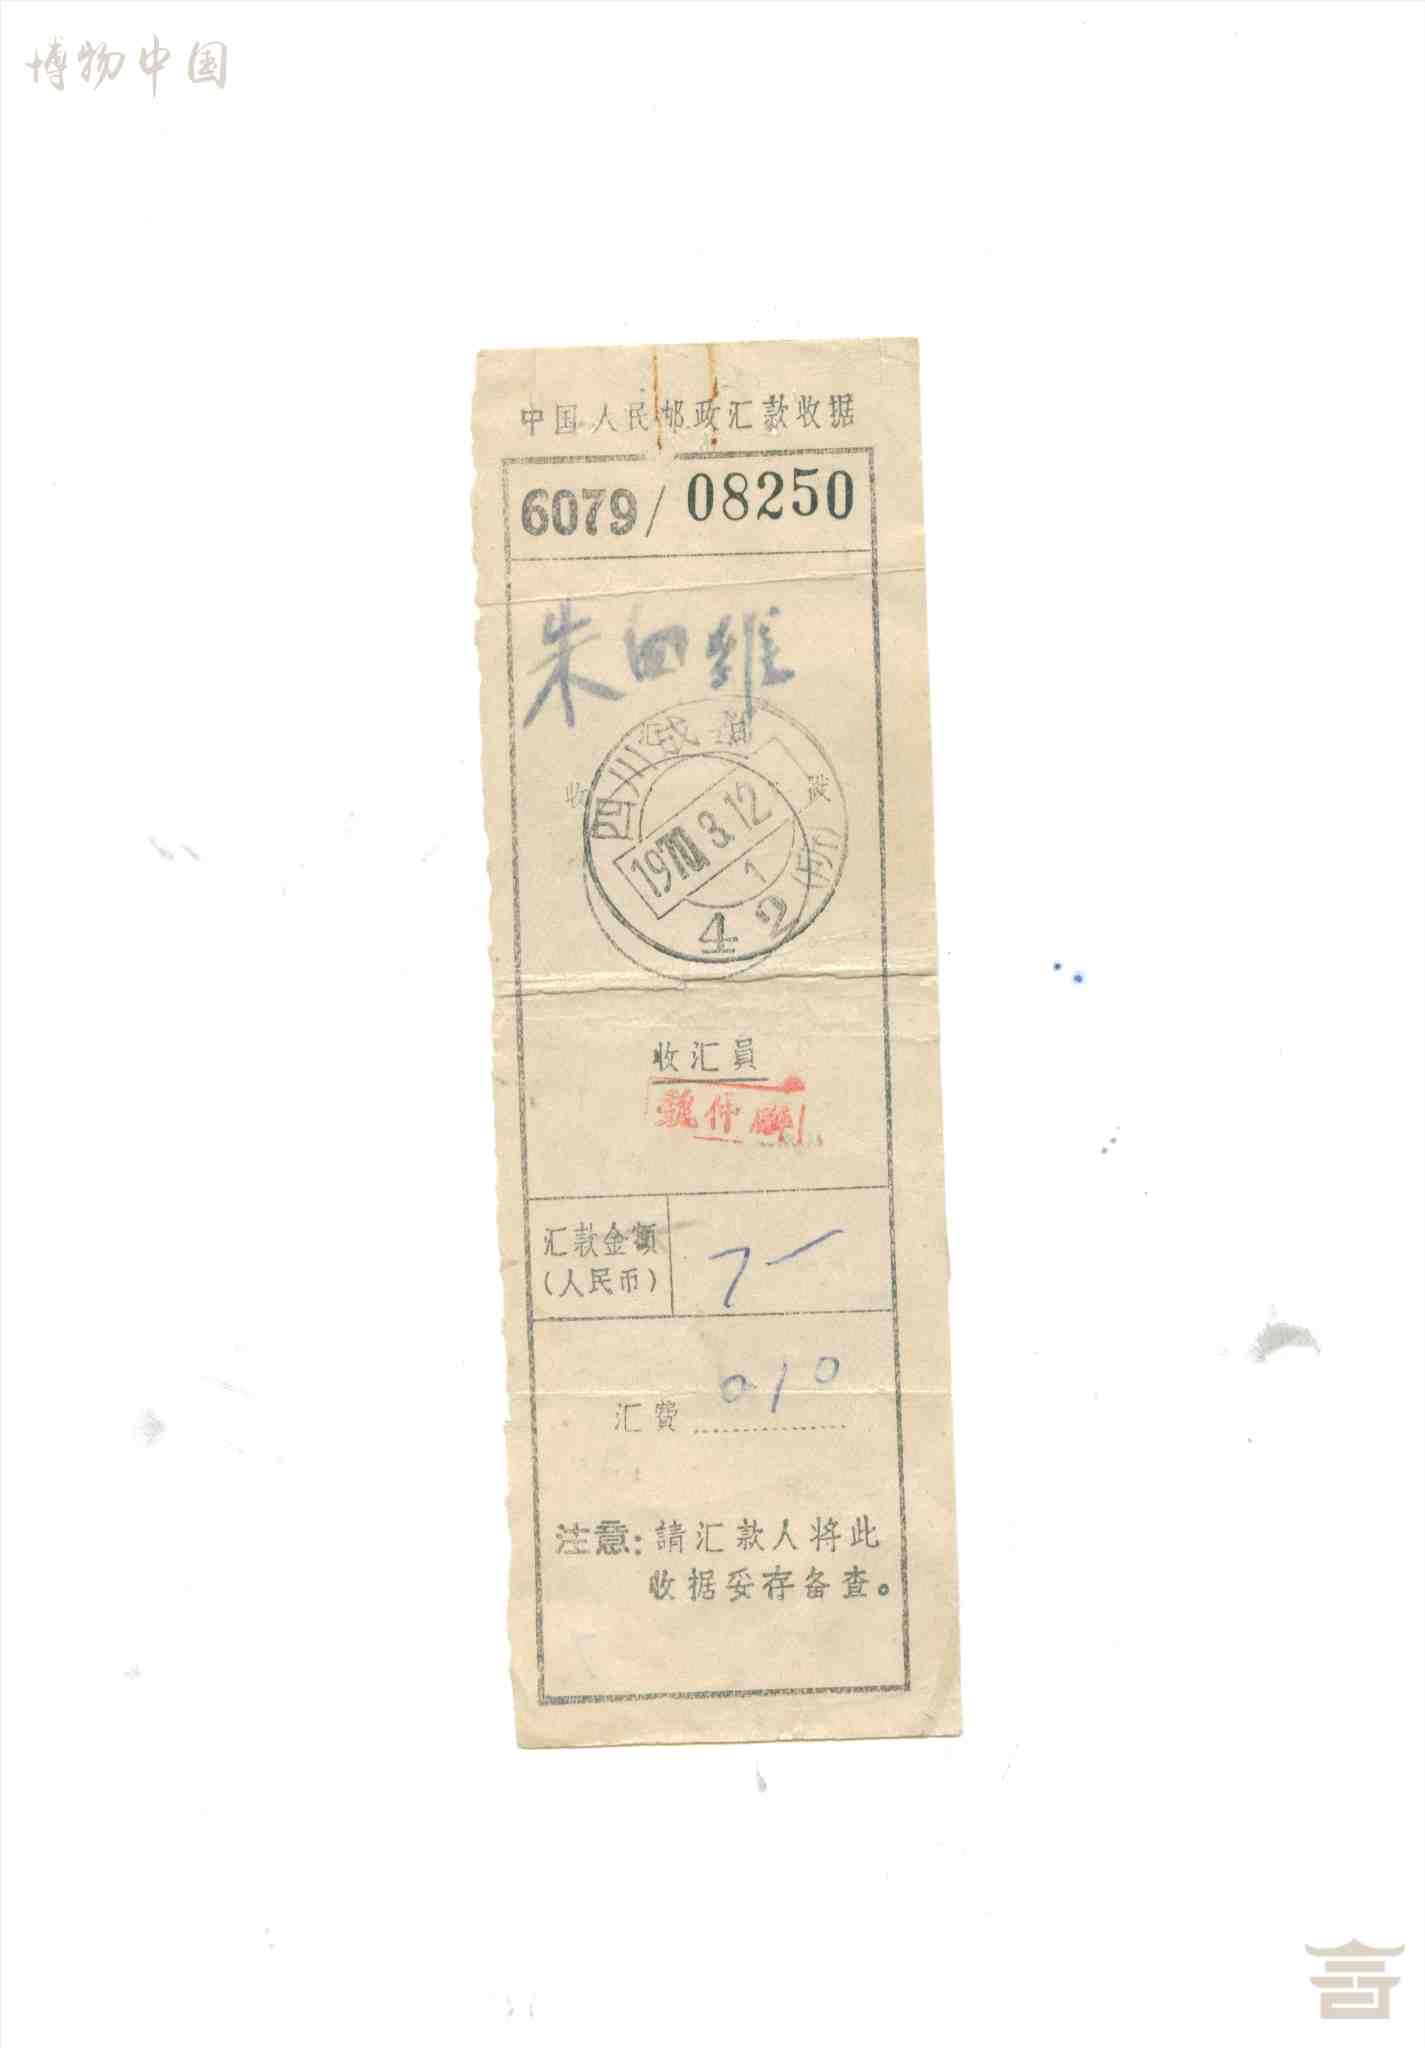 博物中国
中国人民邮政汇款收据
6079/ 08250
朱四维
四川成都
1970.3.12
1
42(所)
收汇員
魏仲
汇款金额
(人民币)
7—
汇費 010
注意: 請汇款人将此
收据妥存备查。